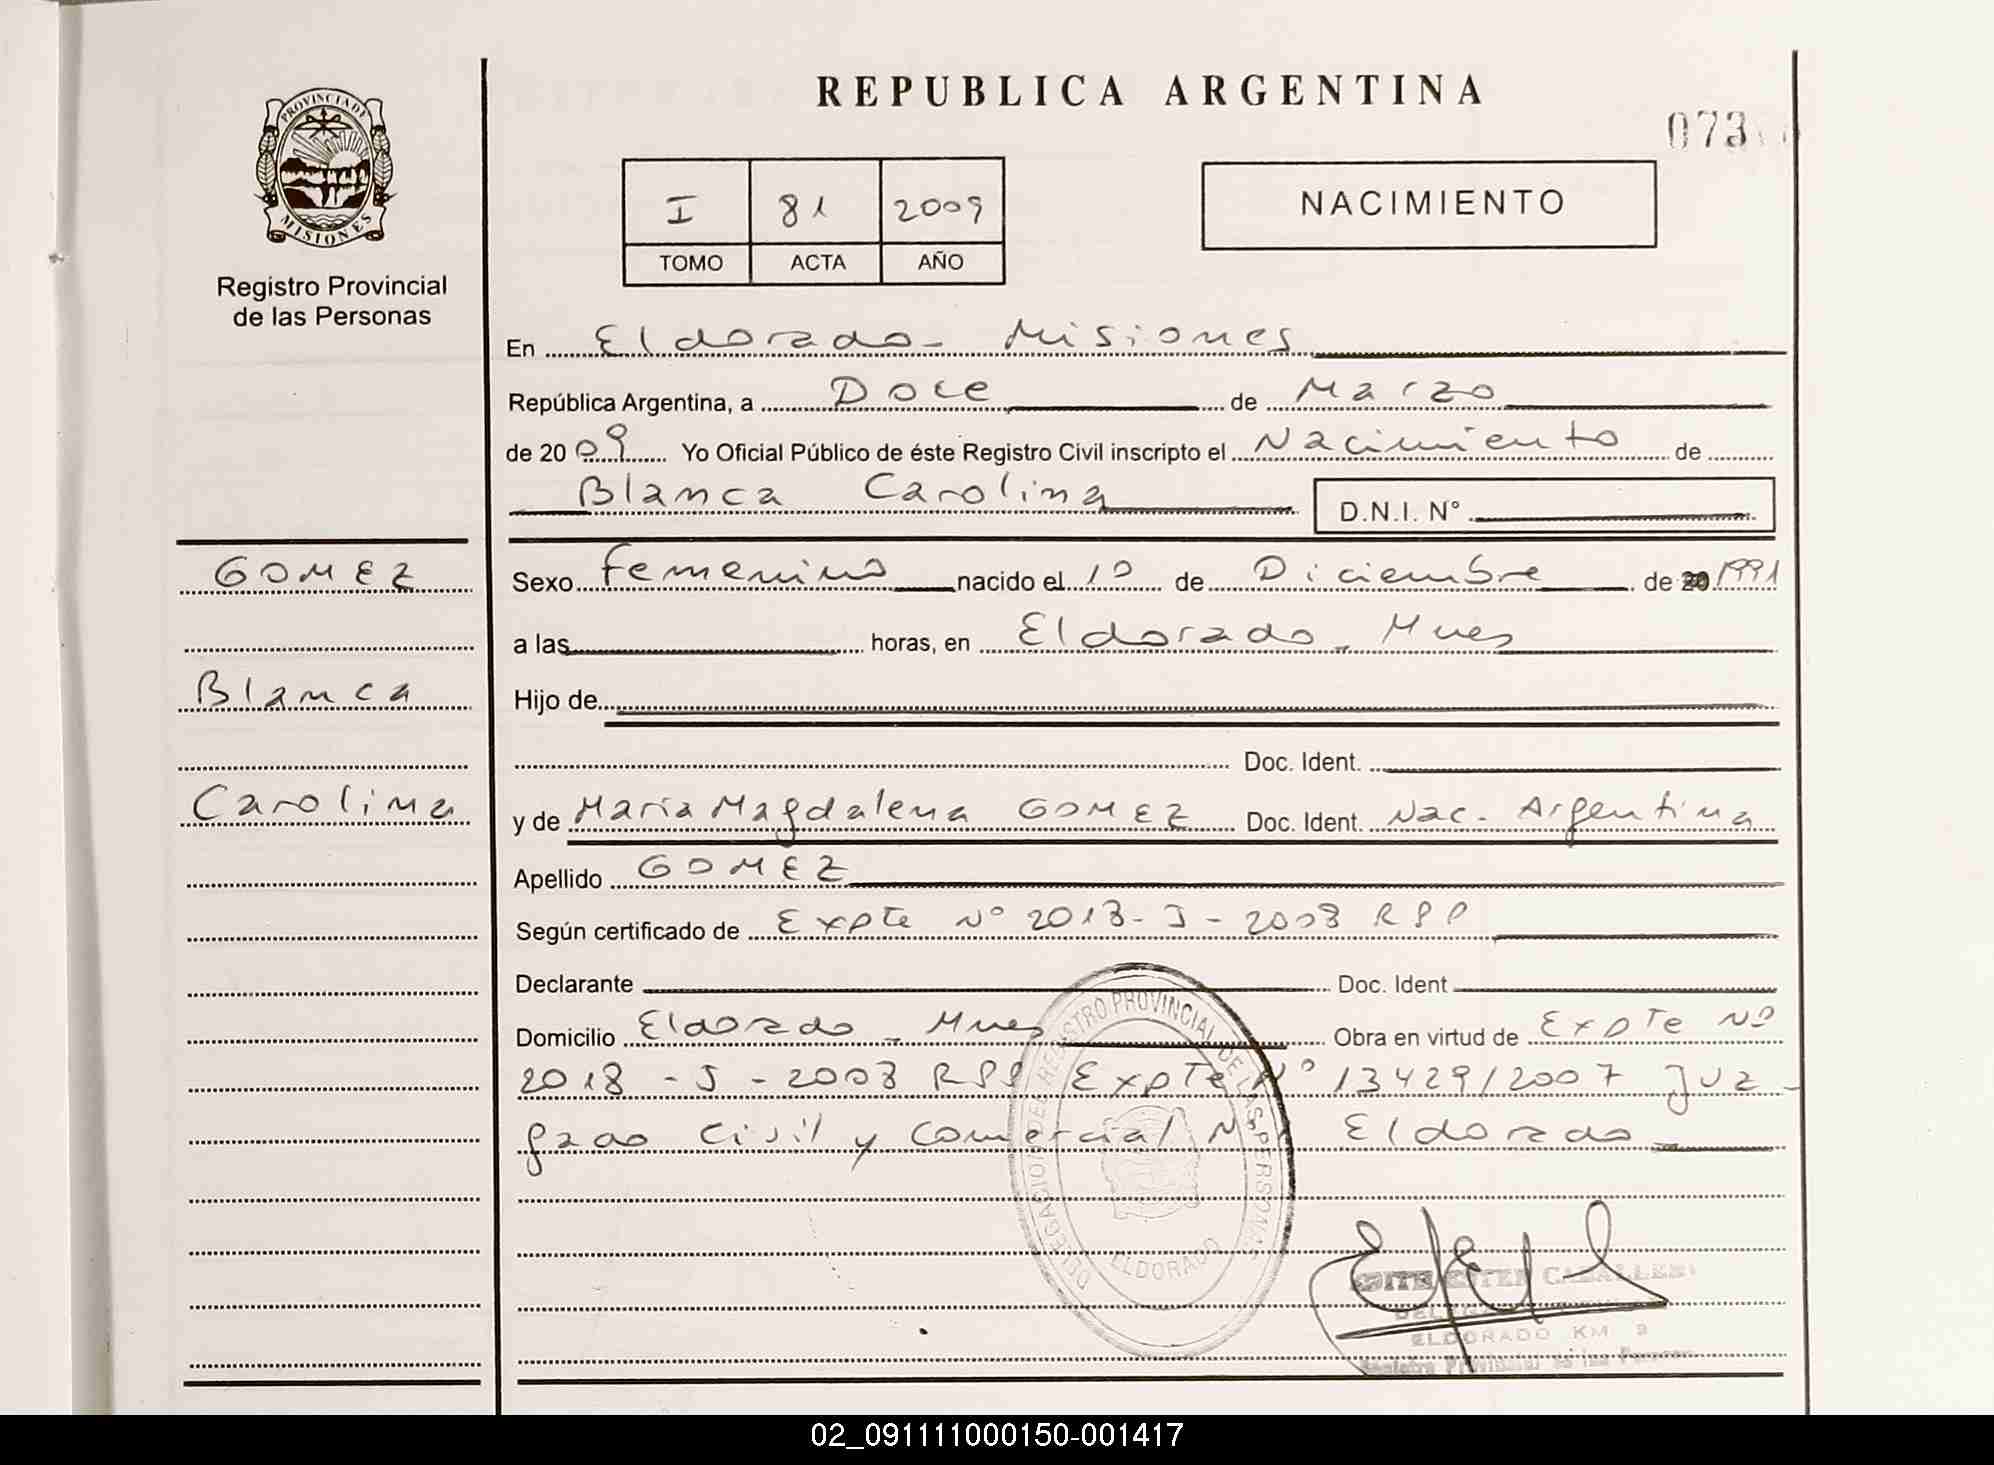 REPUBLICA ARGENTINA
073
PROVINCIA DE
MISIONES
Registro Provincial
de las Personas
I 81 2009
TOMO ACTA AÑO
NACIMIENTO
En Eldorado - Misiones
República Argentina, a Doce de Marzo
de 2009 Yo Oficial Público de éste Registro Civil inscripto el Nacimiento de
Blanca Carolina D.N.I. N°
GOMEZ
Blanca
Carolina
Sexo Femenino nacido el 10 de Diciembre de 20 1991
a las horas, en Eldorado - Mnes
Hijo de
Doc. Ident.
y de Maria Magdalena GOMEZ Doc. Ident. Nac. Argentina
Apellido GOMEZ
Según certificado de Expte N° 2018 - J - 2008 RPP
Declarante Doc. Ident
Domicilio Eldorado - Mnes Obra en virtud de Expte N°
2018 - J - 2008 RPP Expte N° 13429/2007 Juz-
gado Civil y Comercial Eldorado
DELEGACION DEL REGISTRO PROVINCIAL DE LAS PERSONAS
ELDORADO
ELDORADO KM 9
Registro Provincial de las Personas
02_091111000150-001417